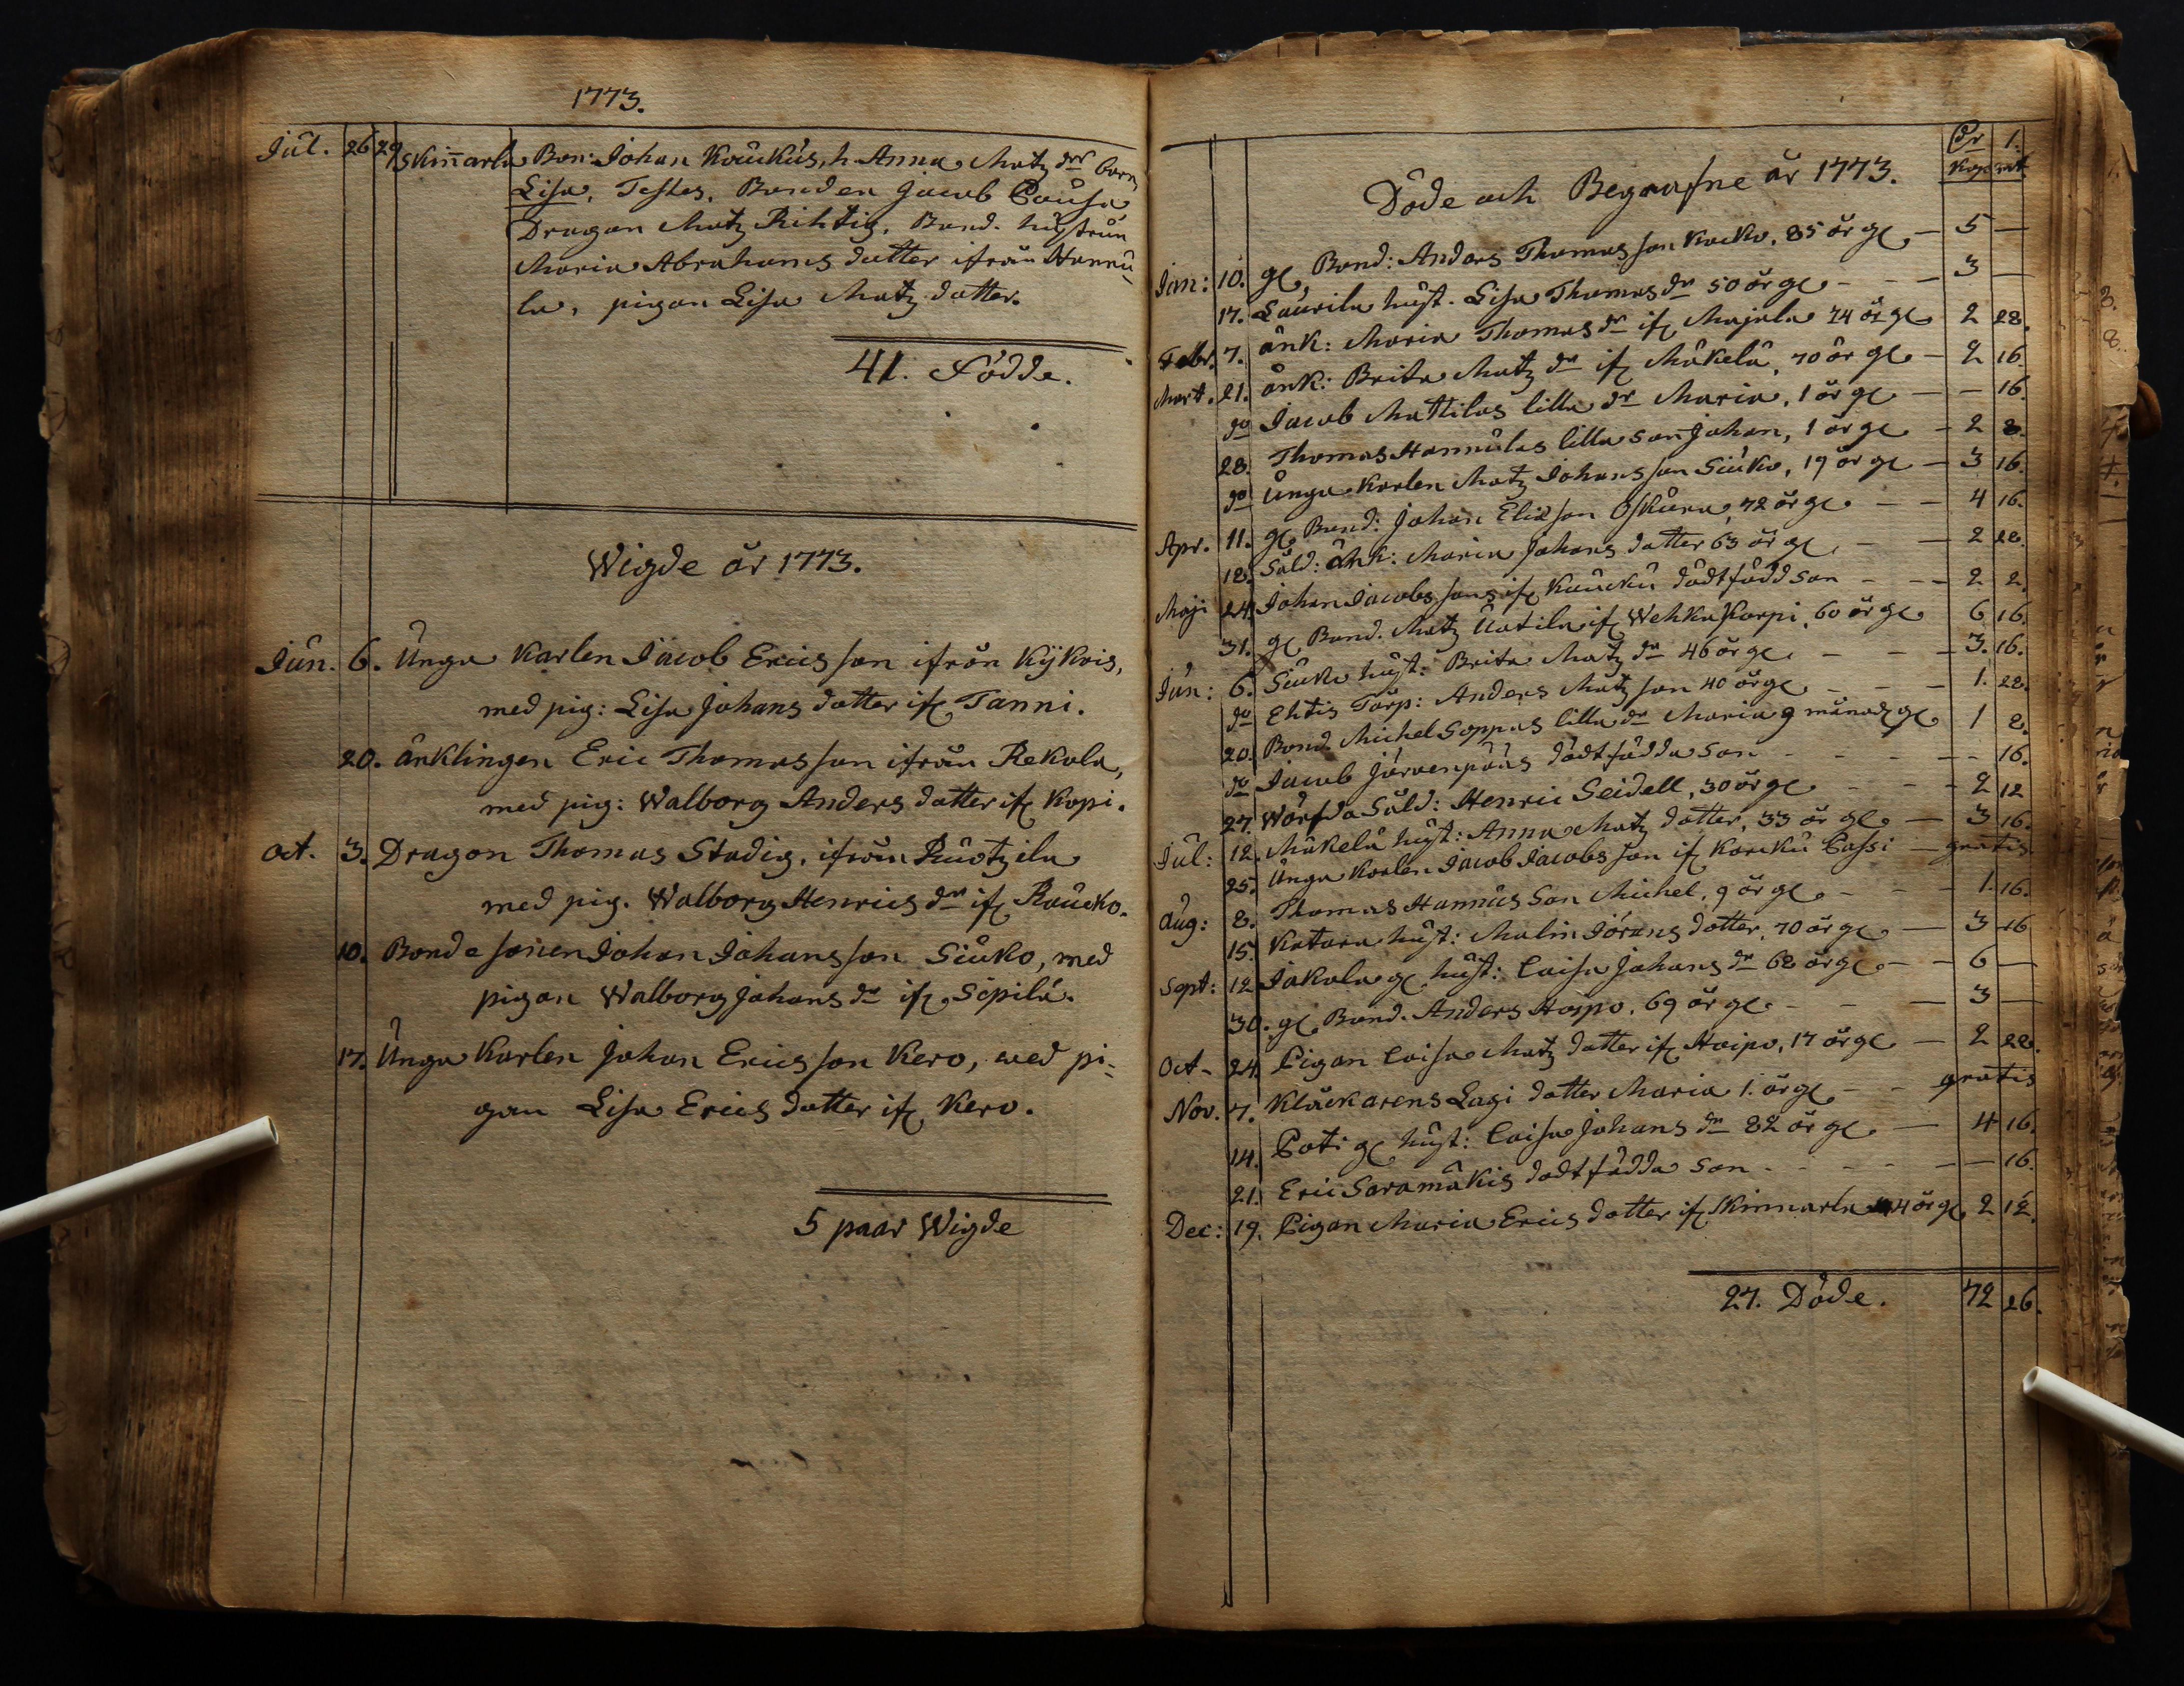 1773.
Jul. 26 29 Skinnarla Bon: Johan Kaukus, h. Anna Matz dr barn
Lisa, Testes, Bonden Jacob Pausa
Dragon Matz Rihtig, Bond. hustrun
Maria Abrahams dotter ifrån Hannu-
la, pigan Lisa Matz dotter.
41. Födde.
Wigde år 1773.
Jun. 6. Unga Karlen Jacob Ericsson ifrån Kykois,
med pig: Lisa Johans dotter if Tanni.
20. änklingen Eric Thomasson ifrån Rekola,
med pig: Walborg Anders dotter if Kopi.
Oct. 3. Dragon Thomas Stadig, ifrån Ruotzila
med pig. Walborg Henrics dr if Raucko.
10. Bondesonen Johan Johansson Siuko, med
pigan Walborg Johans dr if Sipilä.
17. Unga Karlen Johan Ericsson Kero, med pi-
gan Lisa Erics dotter if Kero.
5 paar Wigde
Döde och Begrafne år 1773.
Dr 1.
Kopr mt
Jan: 10. gl. Bond: Anders Thomasson Kacko, 85 år gl - 5 —
17. Laurila hust. Lisa Thomas dr 50 år gl - - 3 —
Febr. 7. änk: Maria Thomas dr if Majala 74 år gl 2 28.
Mart. 21. änk: Brita Matz dr if Mäkelä, 70 år gl - 2 16.
do Jacob Mattilas lilla dr Maria, 1 år gl - - 16.
28. Thomas Hannulas lilla son Johan, 1 år gl - 2 8.
do Unga Karlen Matz Johansson Siuko, 19 år gl - 3 16.
Apr. 11. gl. Bond: Johan Eliasson Oskura, 72 år gl - - 4 16.
18. Sold: änk: Maria Johans dotter 63 år gl. - - 2 28.
Maji 24. Johan Jacobssons if Kaucku dödfödd son - - 2 2.
31. gl Bond. Matz Uotila if Wehka Korpi, 60 år gl 6 16.
Jun: 6. Siuko hust: Brita Matz dr 46 år gl. - - 3. 16.
do Ehtis Torp: Anders Matzson 40 år gl - - - 1. 28.
20. Bond. Michel Soppas lilla dr Maria 9 månad gl 1 2.
do Jacob Järvenpääs dödtfödda son - - - - 16.
27. Wärfda Sold: Henric Seidell, 30 år gl - - - 2 12
Jul: 12. Mäkelä hust: Anna Matz dotter, 33 år gl. - 3 16.
25. Unga Karlen Jacob Jacobsson if Korcku Cassi - gratis
Aug: 8. Thomas Hannus Son Michel, 9 år gl. - - 1. 16.
15. Katara hust: Malin Jörans dotter, 70 år gl - 3 16
Sept: 12. Jakola gl. hust: Caisa Johans dr 68 år gl - - 6 —
30. gl. Bond. Anders Hoipo, 69 år gl. - - - 3 —
Oct. 24. Pigan Caisa Matz dotter if Hoipo, 17 år gl - 2 28.
Nov. 7. Klåckarens Lagi dotter Maria 1. år gl. - - gratis
14. Poti gl hust: Caisa Johans dr 82 år gl. - 4 16.
21. Eric Saramäkis dodtfödda son - - - - - 16.
Dec: 19. Pigan Maria Erics dotter if Skinnarla 44 år gl. 2 12.
27. Döde. 72 26.